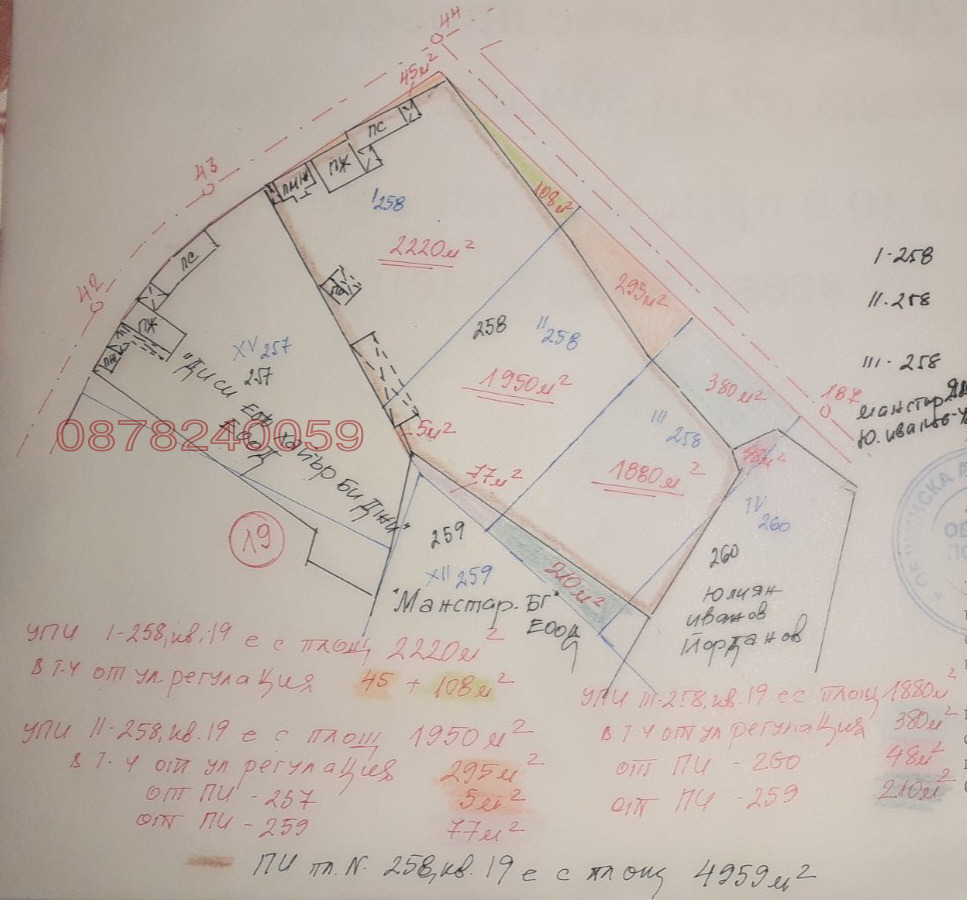 44
45м²
43
ПС
ПЖ
108м²
I 258
2220м²
I-258
ПС
295м²
42
258
II 258
II-258
ПЖ
XV 257
257
1950м²
380м²
III-258
187
"Ди си
ЕООД
Би Джи"
0878240059
5м²
III 258
48м²
77м²
1880м²
IV 260
19
259
260
XII 259
210м²
"Манстар-БГ"
ЕООД
Юлиян
Иванов
Йорданов
УПИ I-258, кв.19 е с площ 2220м²
В Т.Ч от ул регулация 45 + 108м²
УПИ III-258, кв.19 е с площ 1880м²
В Т.Ч от ул регулация 380м²
от ПИ - 260 48м²
от ПИ - 259 210м²
УПИ II-258, кв.19 е с площ 1950м²
В Т-Ч от ул регулация 295м²
от ПИ - 257 5м²
от ПИ - 259 77м²
ПИ пл. N. 258, кв. 19 е с площ 4959м²